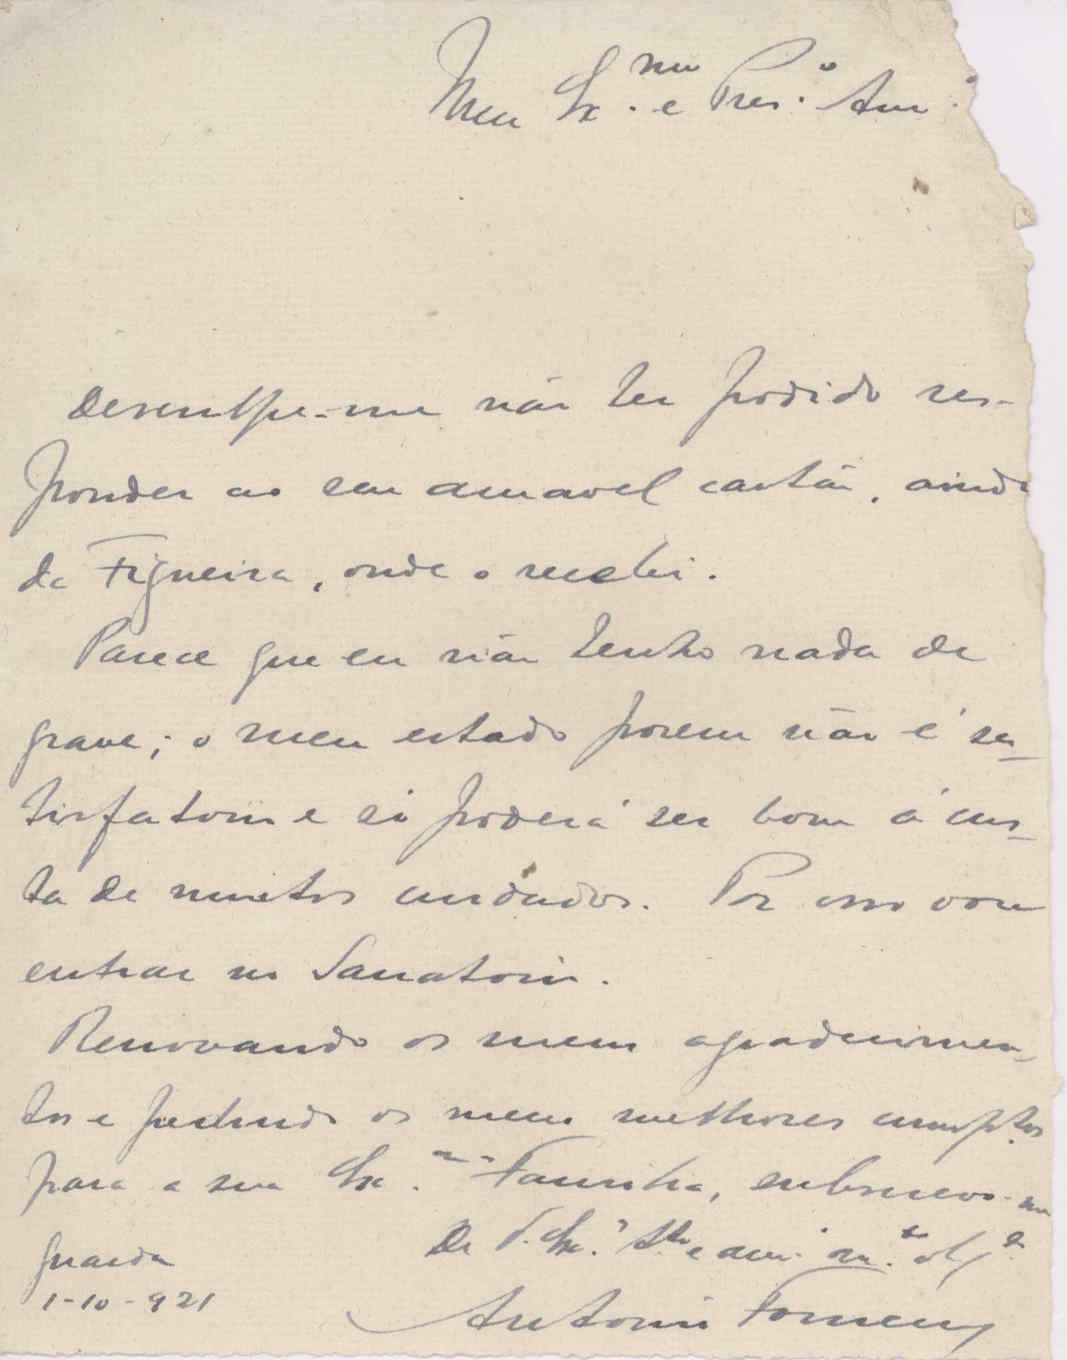 Meu Ex.mo e Pres.o Am.
Desculpe-me não ter podido res-
ponder ao seu amavel cartão, ainda
da Figueira, onde o recebi.
Parece que eu não tenho nada de
grave; o meu estado porem não é sa-
tisfatorio e só poderá ser bom á cus-
ta de muitos cuidados. Por isso vou
entrar no Sanatorio.
Renovando os meus agradecimen-
tos e pedindo os meus melhores cumptos
para a sua Ex.ma Familia, subscrevo-me
De V. Ex.a At.to e am. m.to obg.o
Guarda
1-10-921
Antonio